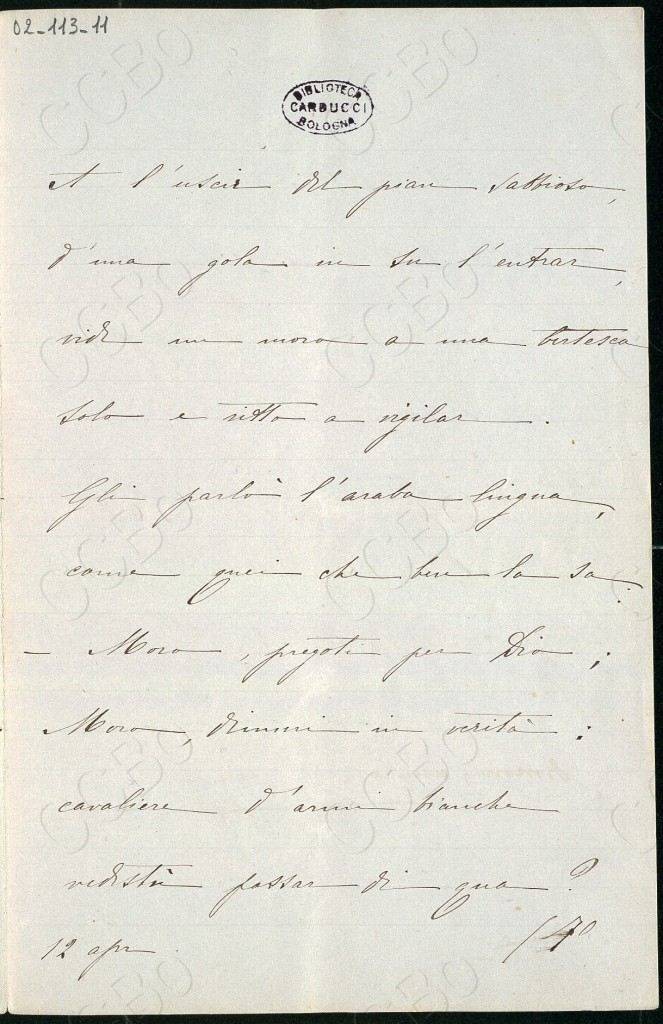 02-113-11
BIBLIOTECA
CARDUCCI
BOLOGNA
A l'uscir del pian sabbioso,
d'una gola in su l'entrar,
vide un moro a una bertesca
solo e ritto a vigilar.
Gli parlò l'araba lingua,
come quei che ben la sa:
— Moro, pregoti per Dio;
Moro, dimmi in verità:
cavaliere d'armi bianche
vedestù passar di qua?
12 apr